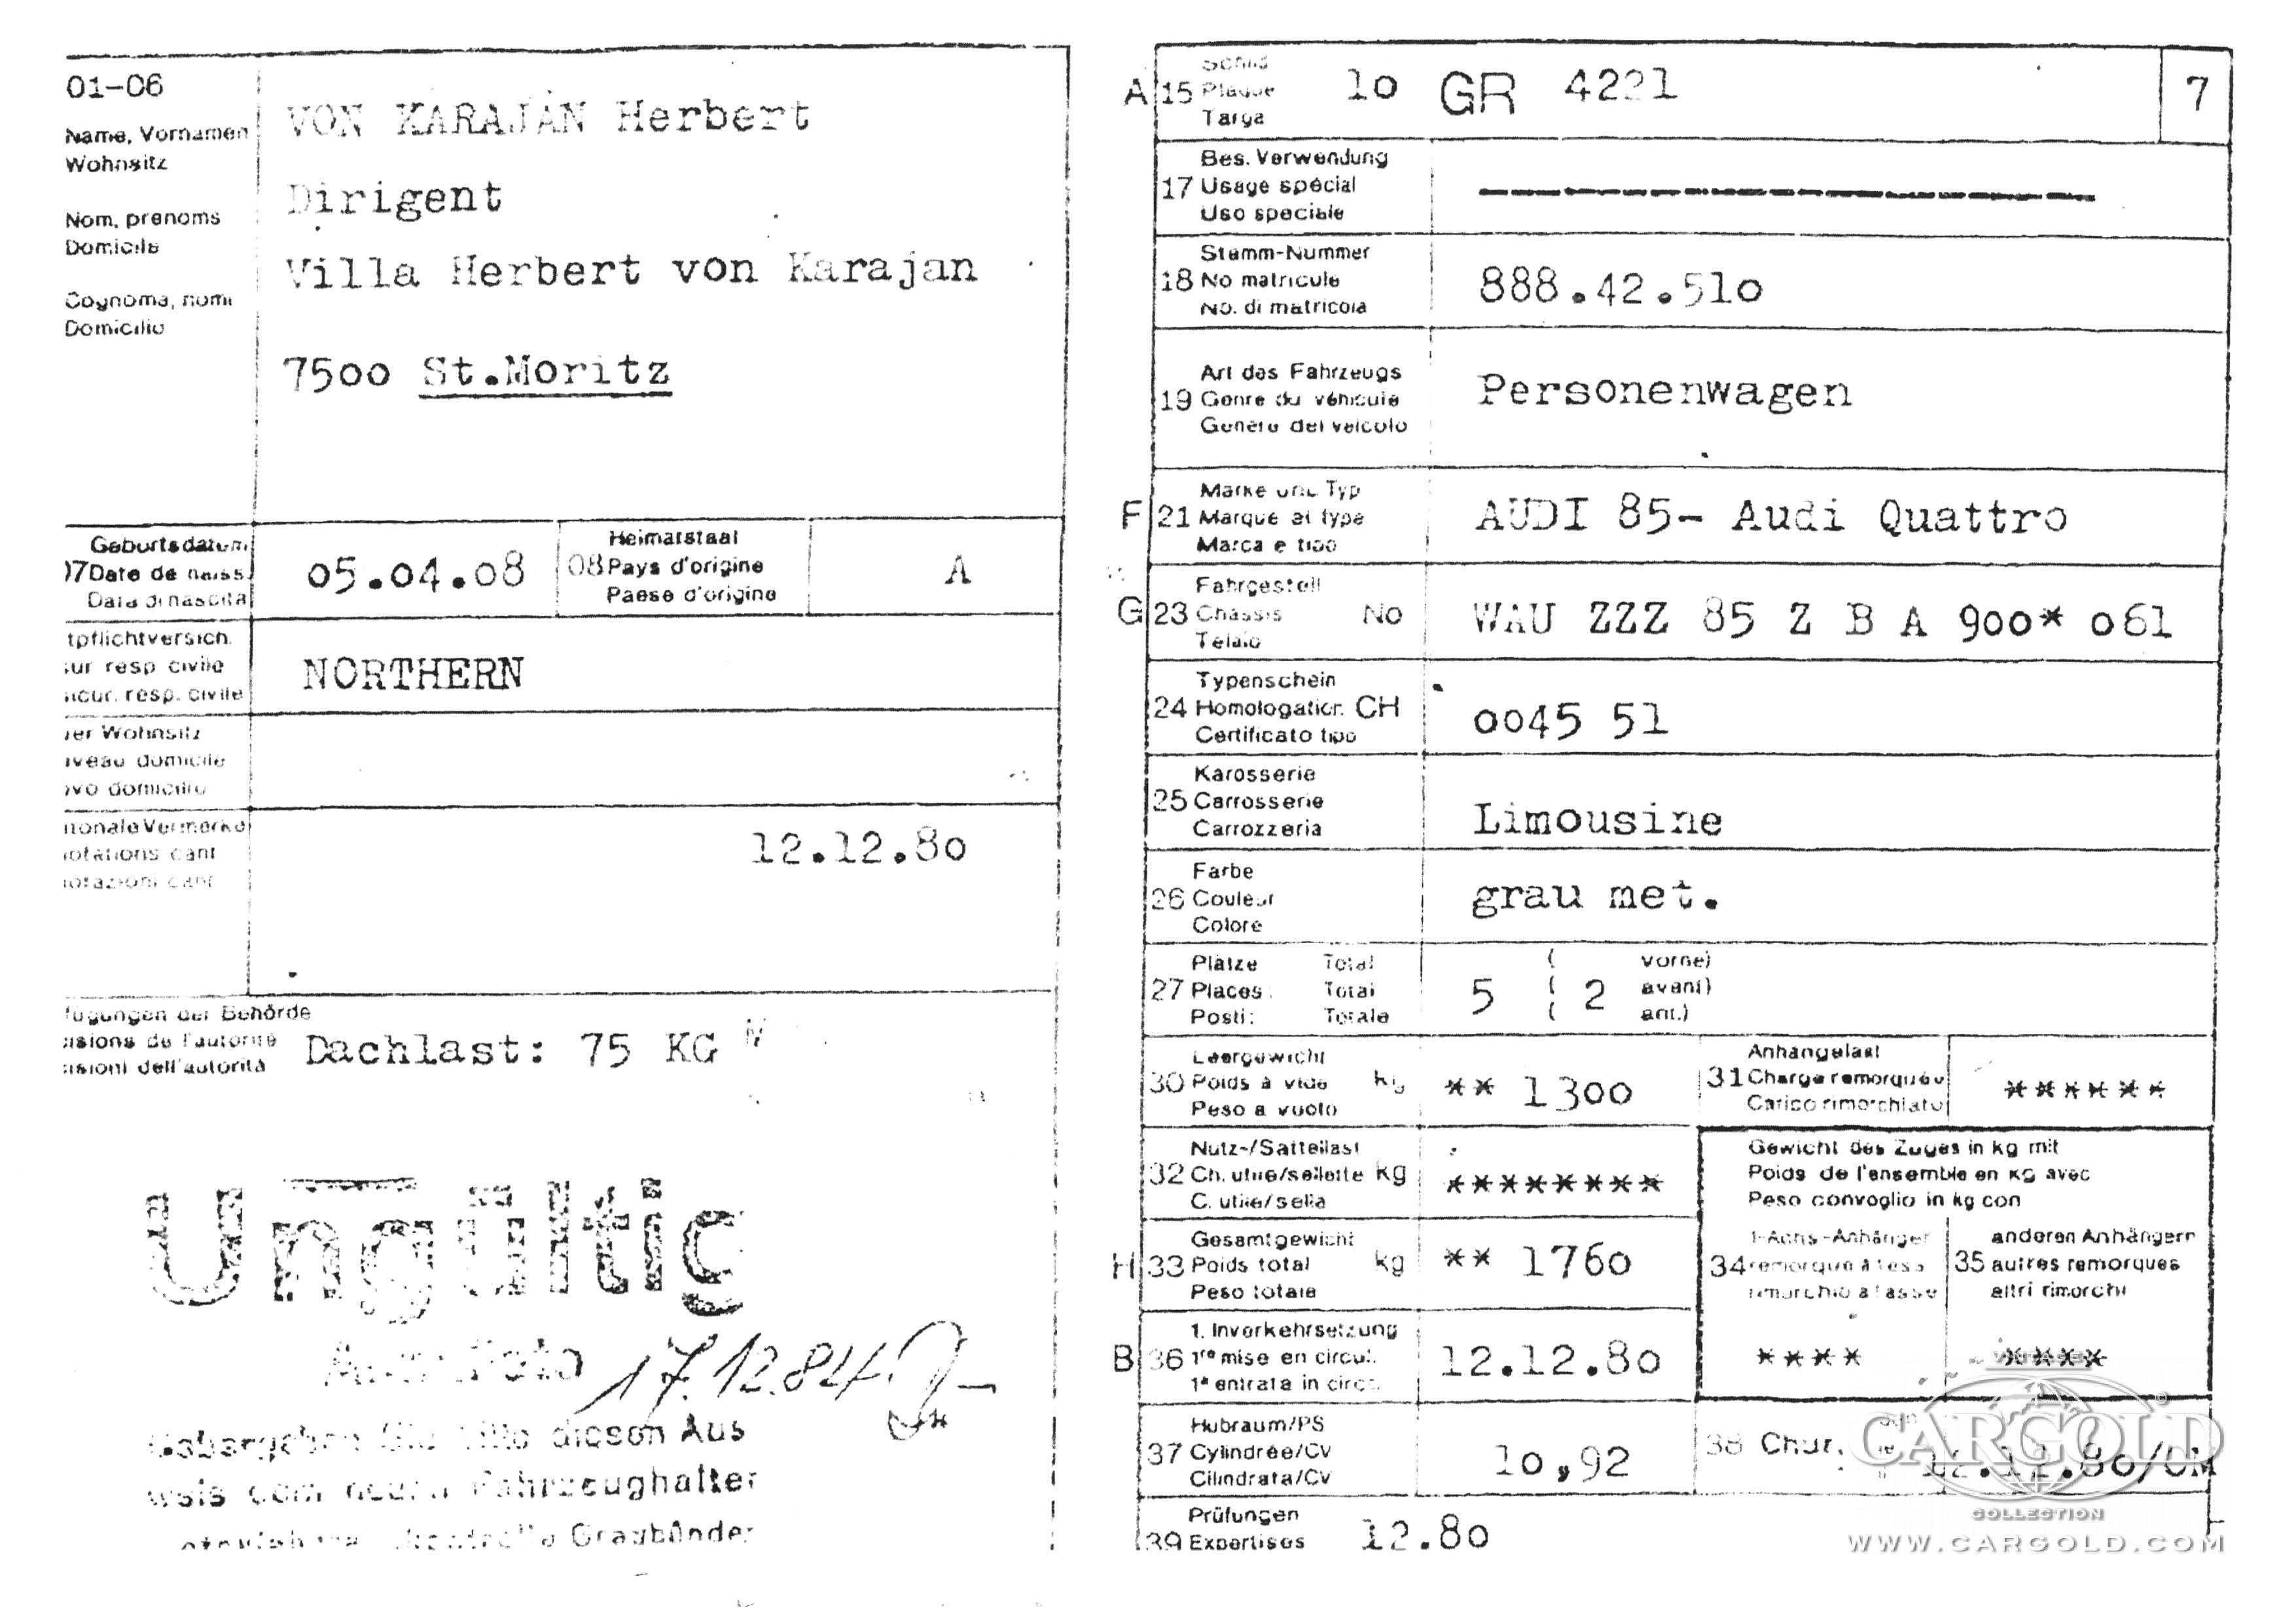 01-06
Name, Vornamen
Wohnsitz
Nom, prénoms
Domicile
Cognome, nomi
Domicilio
VON KARAJAN Herbert
Dirigent
Villa Herbert von Karajan
7500 St.Moritz
Geburtsdatum
07 Date de naiss.
Data di nascita
05.04.08
Heimatstaat
08 Pays d'origine
Paese d'origine
A
tpflichtversich.
ur resp civile
icur. resp. civile
NORTHERN
er Wohnsitz
veau domicile
ovo domicilio
tionale Vermerke
otations cant
otazioni cant
12.12.80
fügungen der Behörde
isions de l'autorité
isioni dell'autorità
Dachlast: 75 KG
Ungültig
17.12.84
diesen Aus
weis dem neuen Fahrzeughalter
Graubünden
A 15 Schild
Plaque
Targa
lo GR 4221
7
17 Bes. Verwendung
Usage spécial
Uso speciale
18 Stamm-Nummer
No matricule
No. di matricola
888.42.5lo
19 Art des Fahrzeugs
Genre du véhicule
Genere del veicolo
Personenwagen
F 21 Marke und Typ
Marque et type
Marca e tipo
AUDI 85- Audi Quattro
G 23 Fahrgestell
Châssis No
Telaio
WAU ZZZ 85 Z B A 900* 061
24 Typenschein
Homologation CH
Certificato tipo
0045 51
25 Karosserie
Carrosserie
Carrozzeria
Limousine
26 Farbe
Couleur
Colore
grau met.
27 Plätze Total
Places: Total
Posti: Totale
5 ( 2 vorne)
avant)
ant.)
30 Leergewicht
Poids à vide kg
Peso a vuoto
** 1300
31 Anhängelast
Charge remorquée
Carico rimorchiato
******
32 Nutz-/Sattellast
Ch. utile/sellette kg
C. utile/sella
********
Gewicht des Zuges in kg mit
Poids de l'ensemble en kg avec
Peso convoglio in kg con
H 33 Gesamtgewicht
Poids total kg
Peso totale
** 1760
34 1-Achs-Anhänger
remorque à 1 ess
rimorchio a 1 asse
****
35 anderen Anhängern
autres remorques
altri rimorchi
****
B 36 1. Inverkehrsetzung
1re mise en circul.
1a entrata in circ.
12.12.80
37 Hubraum/PS
Cylindrée/CV
Cilindrata/CV
10,92
38 Chur,
12.12.80/CM
39 Prüfungen
Expertises
12.80
CARGOLD
COLLECTION
WWW.CARGOLD.COM